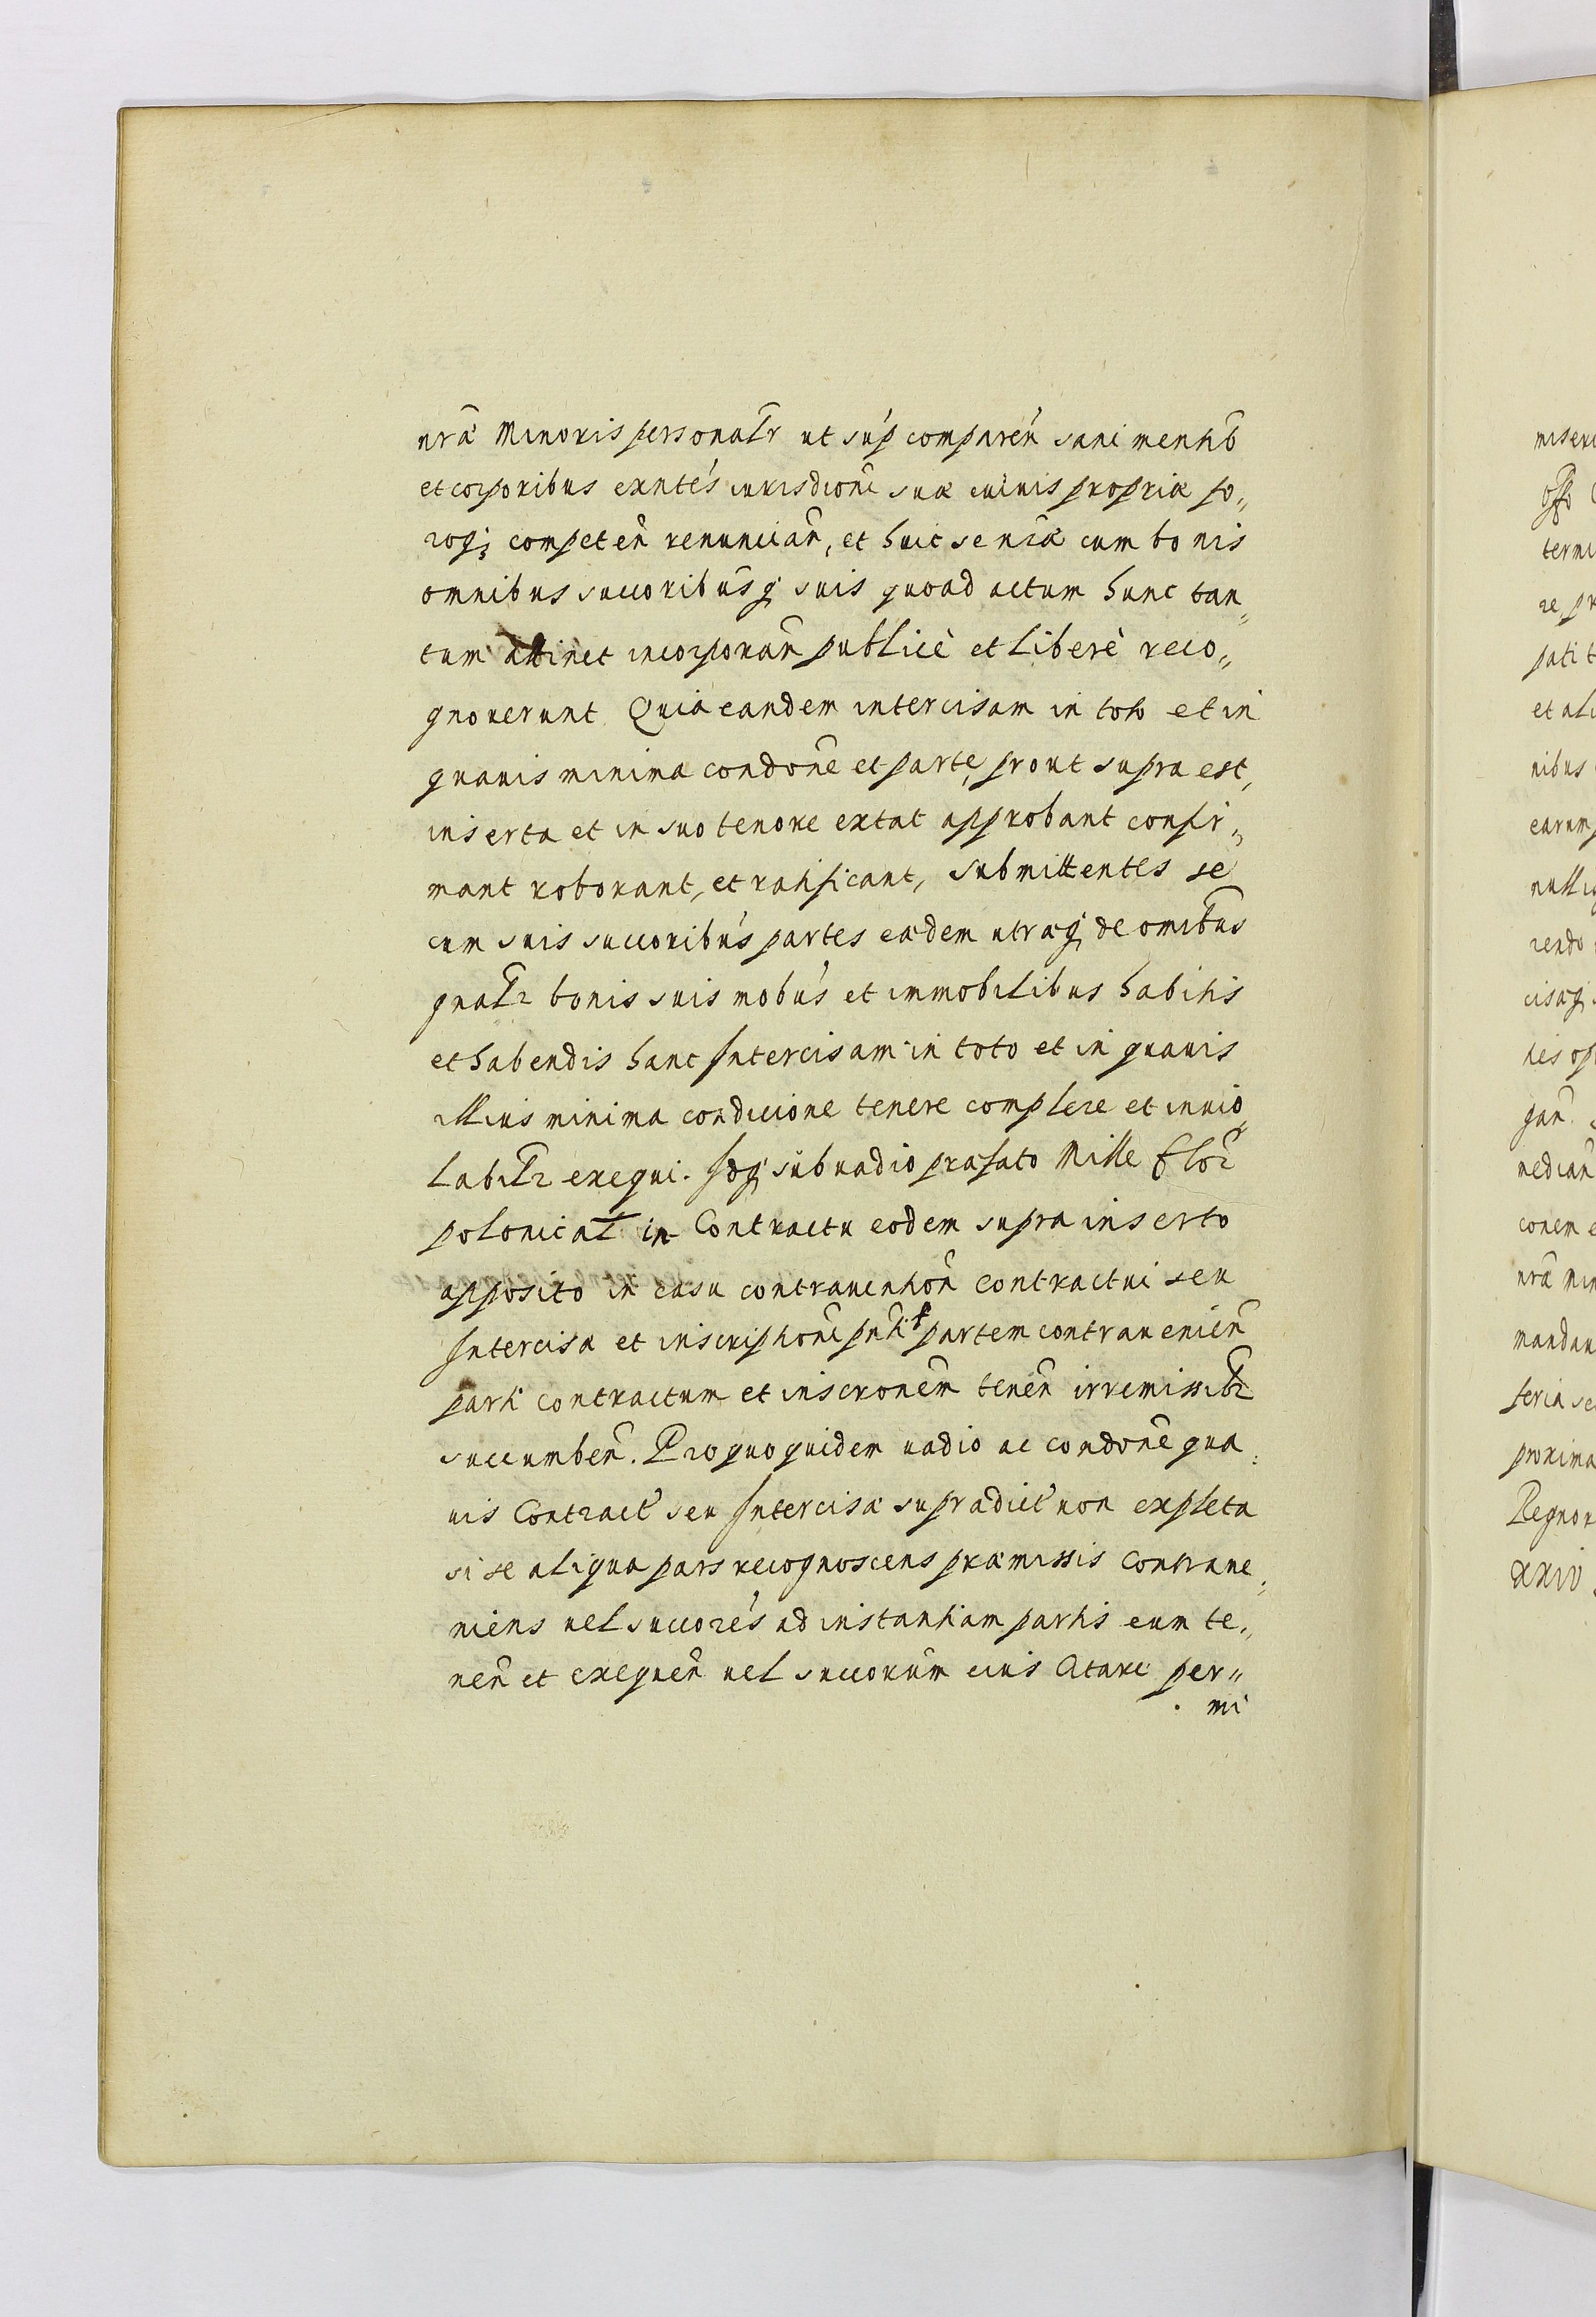 nrã Minoris personaltr ut sup̃ comparen̄ sani mentib
et corporibus exntes iurisdioni suæ cuiuis propriæ fo„
roq; competen̄ renuncian̄, et huic se nrã cum bonis
omnibus succoribusq suis quoad actum hunc tan„
tum attinet incorporan̄ publicè et liberè reco„
gnouerunt Quia eandem intercisam in toto et in
quauis minima condone et parte, prout supra est,
inserta et in suo tenore extat approbant confir„
mant roborant, et ratificant, submittentes se
cum suis succoribus partes eædem utraq de omibus
gnaltr bonis suis mobus et immobilibus habitis
et habendis hanc Intercisam in toto et in quauis
illius minima condicione tenere complere et inuio„
labiltr exequi. Idq sub uadio præfato Mille flor̄
polonical in Contractu eodem supra inserto
apposito in casu contrauention̄ contractui seu
Intercisæ et inscriptioni pnti partem contrauenien̄
parti contractum et inscronem tenen̄ irremissibr
succumben̄. Pro quo quidem uadio ac condone qua„
uis Contract seu Intercisæ supradict non expleta
si se aliqua pars recognoscens præmissis contraue„
niens uel succores ad instantiam partis eum te„
nen̄ et exequen̄ uel succorum eius Citari per„
mi
miseri
termi
re, pr
pati t
et ali
nibus
earum
nulli
rendo
cisaq
tis op
gan̄
median̄
conem e
nrã min
mandan
feria se
proxima
Regnor
XXIV